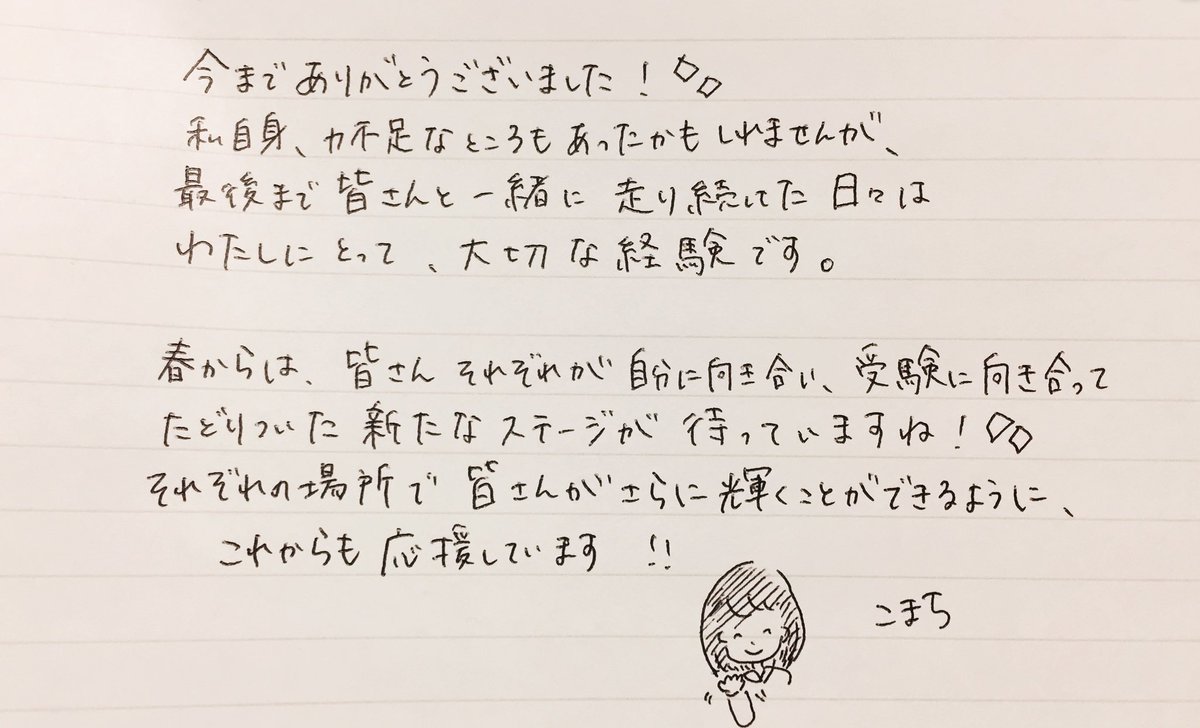 今までありがとうございました！
私自身、力不足なところもあったかもしれませんが、
最後まで皆さんと一緒に走り続けてた日々は
わたしにとって、大切な経験です。
春からは、皆さんそれぞれが自分に向き合い、受験に向き合って
たどりついた新たなステージが待っていますね！
それぞれの場所で皆さんがさらに輝くことができるように、
これからも応援しています!!
こまち